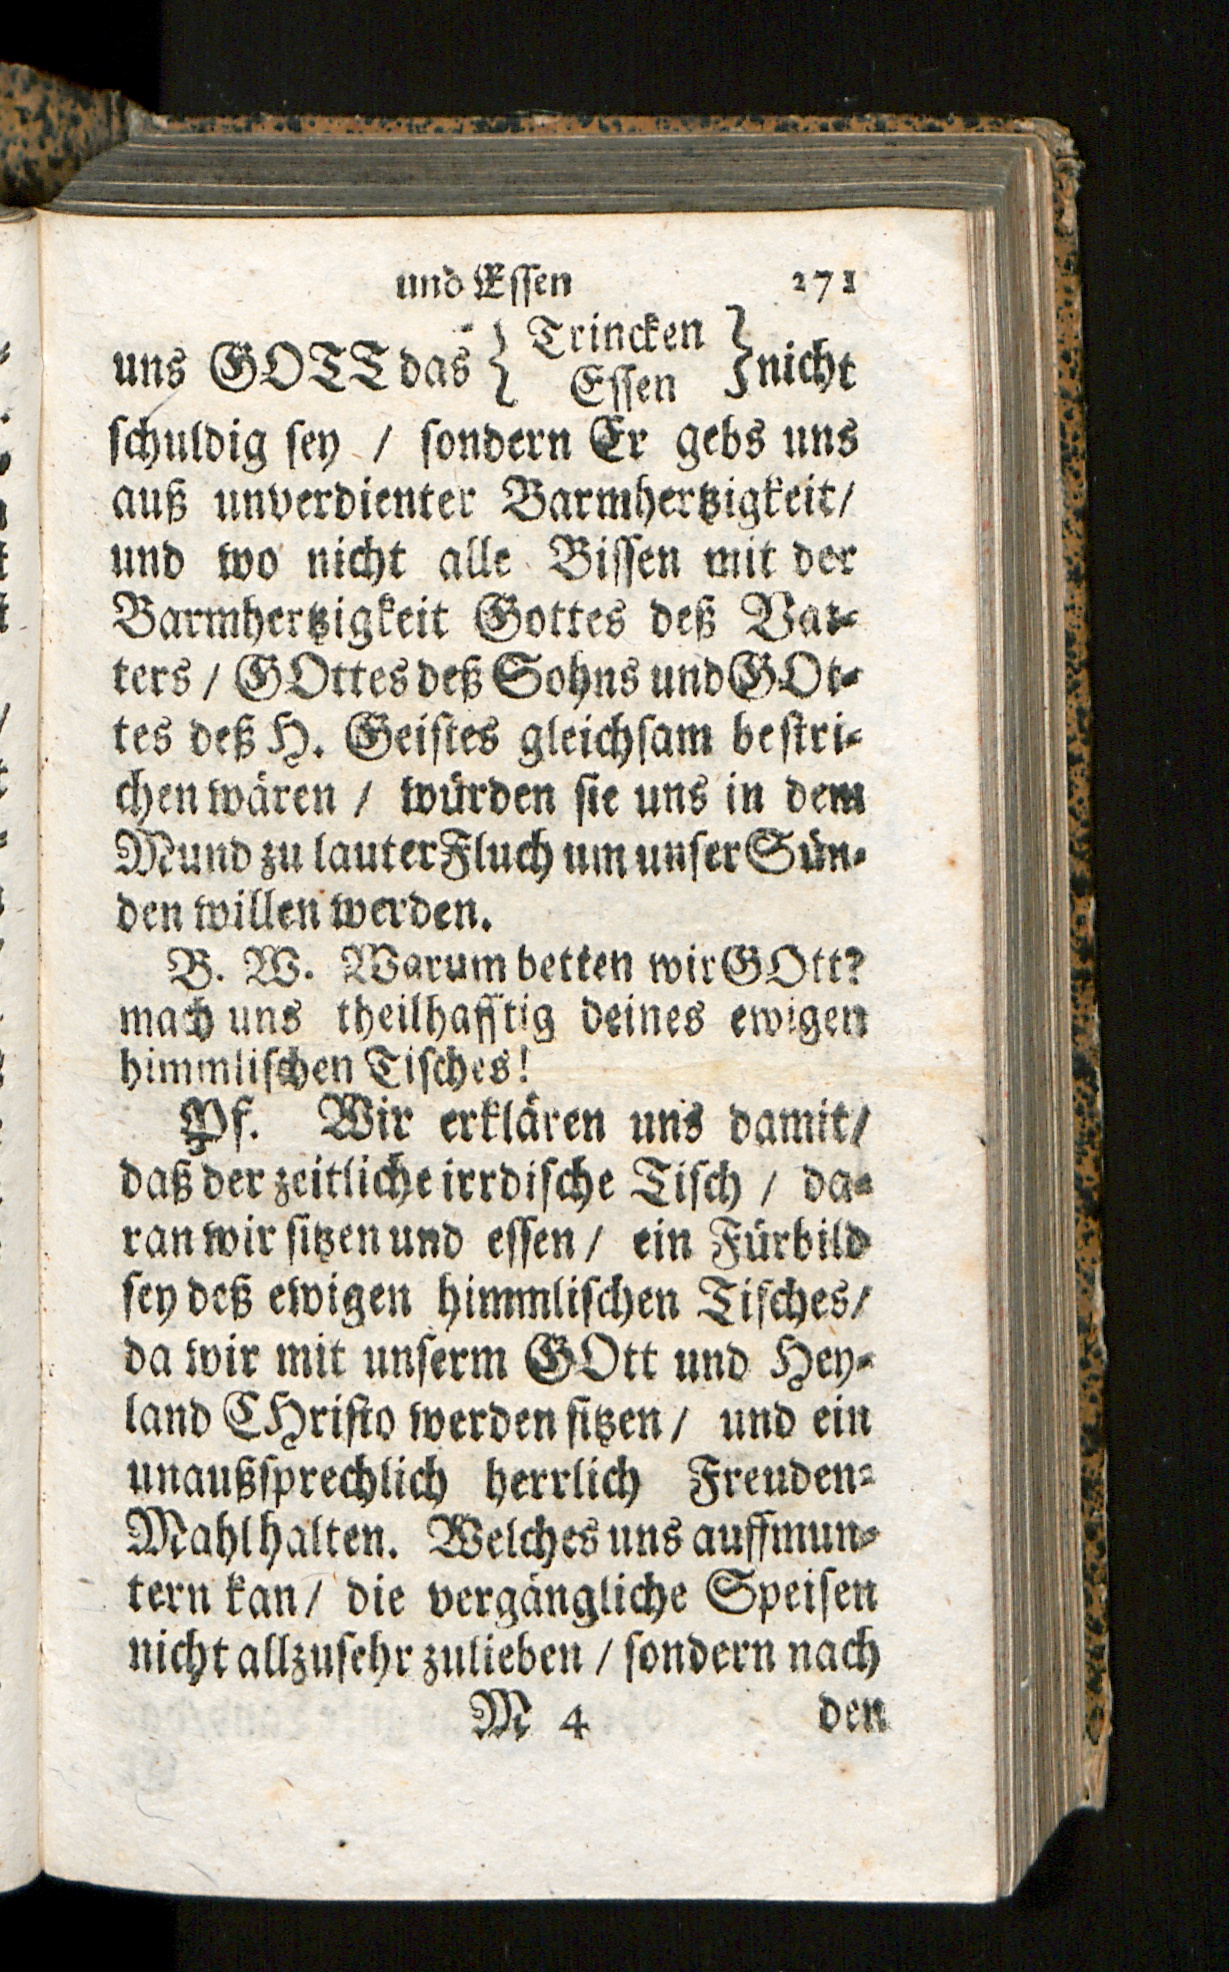 und Essen 271
uns GOTT das { Trincken
Essen } nicht
schuldig sey / sondern Er gebs uns
auß unverdienter Barmhertzigkeit/
und wo nicht alle Bissen mit der
Barmhertzigkeit Gottes deß Vat-
ters / GOttes deß Sohns und GOt-
tes deß H. Geistes gleichsam bestri-
chen wären / würden sie uns in dem
Mund zu lauter Fluch um unser Sün-
den willen werden.
B. W. Warum betten wir GOtt?
mach uns theilhafftig deines ewigen
himmlischen Tisches!
Pf. Wir erklären uns damit/
daß der zeitliche irrdische Tisch / da-
ran wir sitzen und essen / ein Fürbild
sey deß ewigen himmlischen Tisches/
da wir mit unserm GOtt und Hey-
land CHristo werden sitzen / und ein
unaußsprechlich herrlich Freuden-
Mahl halten. Welches uns auffmun-
tern kan / die vergängliche Speisen
nicht allzusehr zulieben / sondern nach
M 4 den